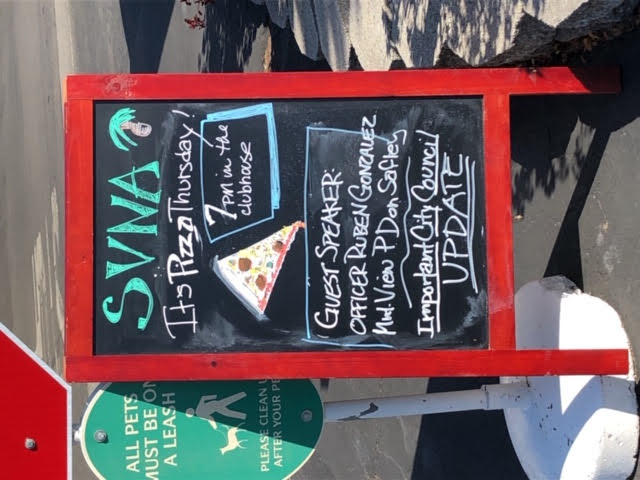 ALL PETS
MUST BE ON
A LEASH
PLEASE CLEAN U
AFTER YOUR PE
SVNA
It's Pizza Thursday!
7pm in the
clubhouse
GUEST SPEAKER:
OFFICER RUBEN GONZALEZ
Mtn. View PD on Safley
Important City Council
UPDATE